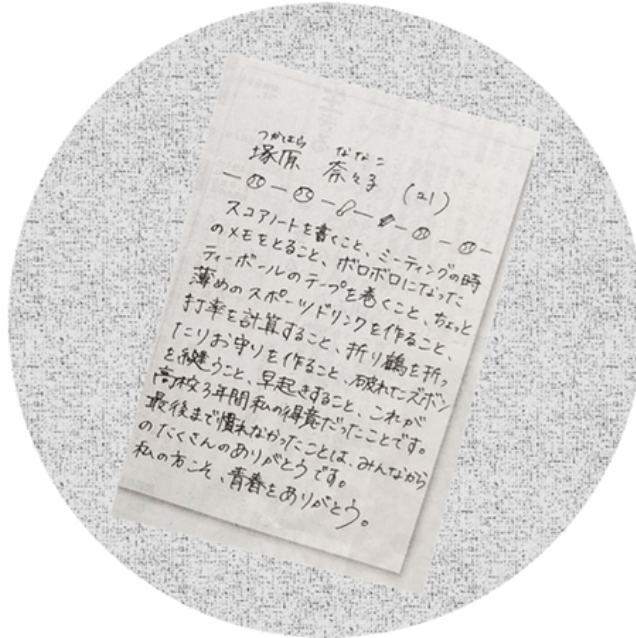 つかはら ななこ
塚原 奈々子 (21)
スコアノートを書くこと、ミーティングの時
のメモをとること、ボロボロになった
ティーボールのテープを巻くこと、ちょっと
薄めのスポーツドリンクを作ること、
打率を計算すること、折り鶴を折っ
たりお守りを作ること、破れたズボン
を縫うこと、早起きすること、これが
高校3年間私の得意だったことです。
最後まで慣れなかったことは、みんなから
のたくさんのありがとうです。
私の方こそ、青春をありがとう。